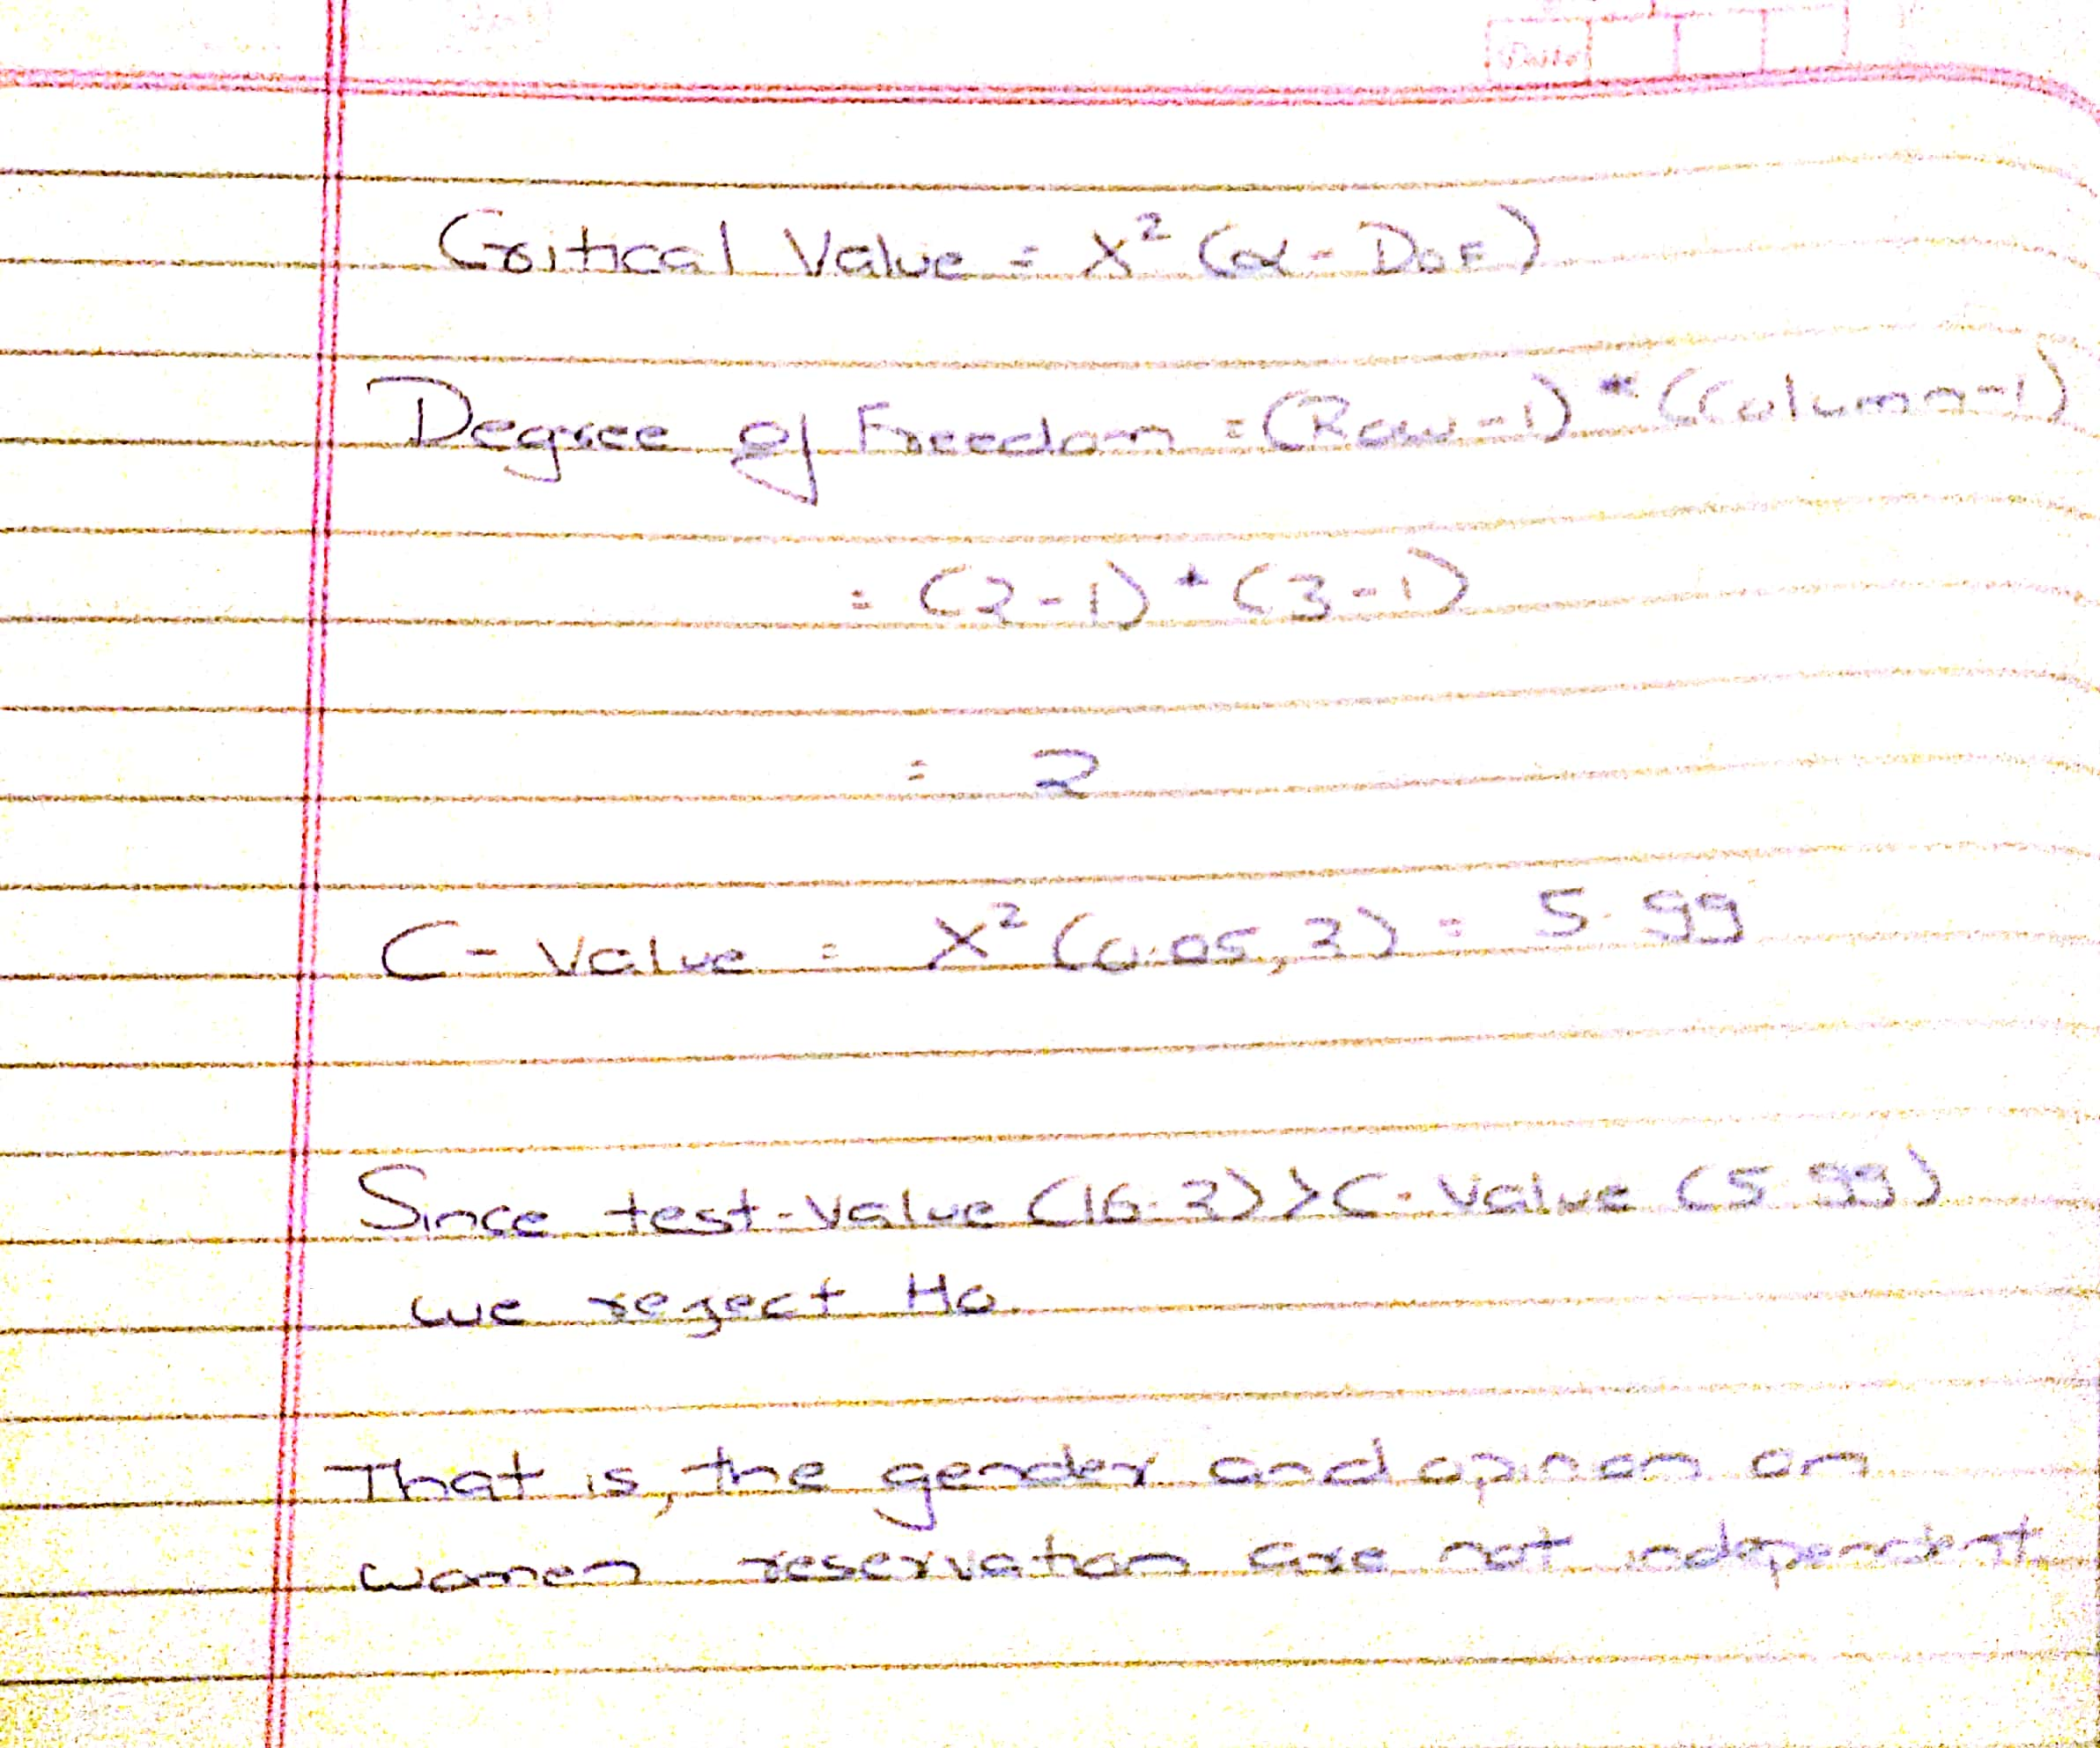 Date
Critical Value = X² (α - DOF)
Degree of Freedom = (Row-1) * (Column-1)
= (2-1) * (3-1)
= 2
C- Value = X² (0.05, 2) = 5.99
Since test-Value (16.2) > C- Value (5.99)
we reject Ho.
That is, the gender and opinion on
women reservation are not independent